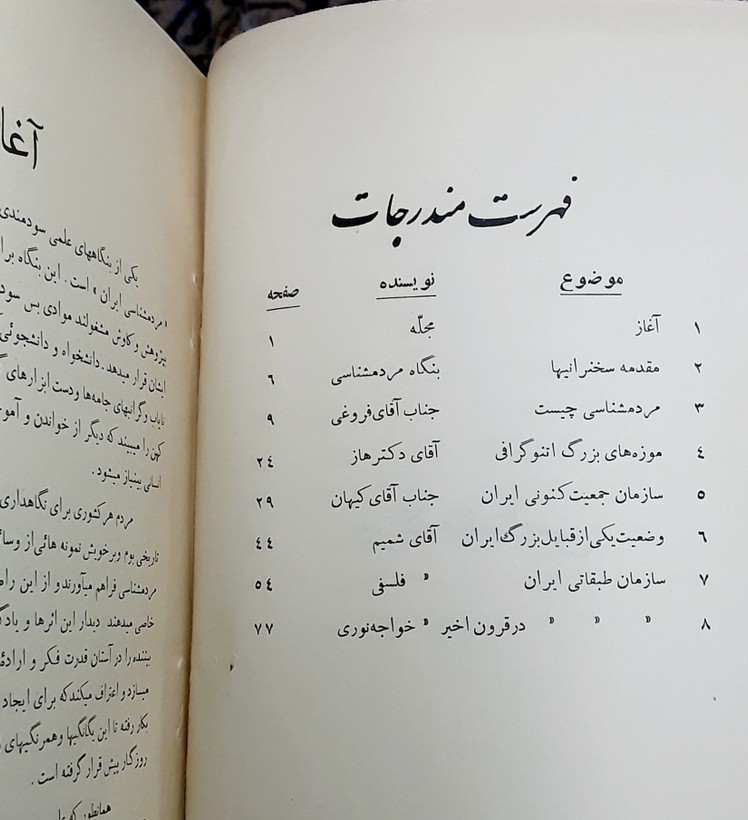 فهرست مندرجات
موضوع نویسنده صفحه
۱ آغاز مجلّه ۱
۲ مقدمه سخنرانیها بنگاه مردمشناسی ۶
۳ مردمشناسی چیست جناب آقای فروغی ۹
٤ موزه‌های بزرگ اتنوگرافی آقای دکتر هاز ۲٤
۵ سازمان جمعیت کنونی ایران جناب آقای کیهان ۲۹
٦ وضعیت یکی از قبایل بزرگ ایران آقای شمیم ٤٤
۷ سازمان طبقاتی ایران » فلسفی ۵٤
۸ » » » در قرون اخیر » خواجه نوری ۷۷
یکی از بنگاههای علمی سودمندی
«مردمشناسی ایران» است. این بنگاه
پژوهش و کاوش مشغولند موادی بس
ایشان قرار میدهد. دانشخواه و
نایاب و گرانبهای جامه‌ها و دست ابزارهای
کهن را میبیند که دیگر از خواندن و
انسانی بینیاز میشود.
مردم هر کشوری برای نگاهداری
تاریخی بوم و بر خویش نمونه هائی از
مردمشناسی فراهم میآورند و از این
خاصی میدهند دیدار این اثرها و
بیننده را در آستان قدرت فکر و
میسازد و اعتراف میکند که برای ایجاد
بکار رفته تا این یگانگیها و همرنگیهای
روزگار پیش قرار گرفته است.
همانطور که